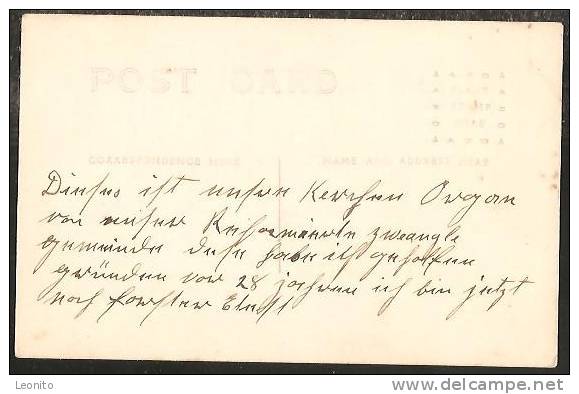 POST CARD
CORRESPONDENCE HERE
NAME AND ADDRESS HERE
Dieses ist unsere Kerchen Organ
von unser Reformierte zweangle
gemeinde dese habe ich geholfen
gründen vor 28 jahren ich bin jetzt
noch forster Elest
Leonito
www.delcampe.net